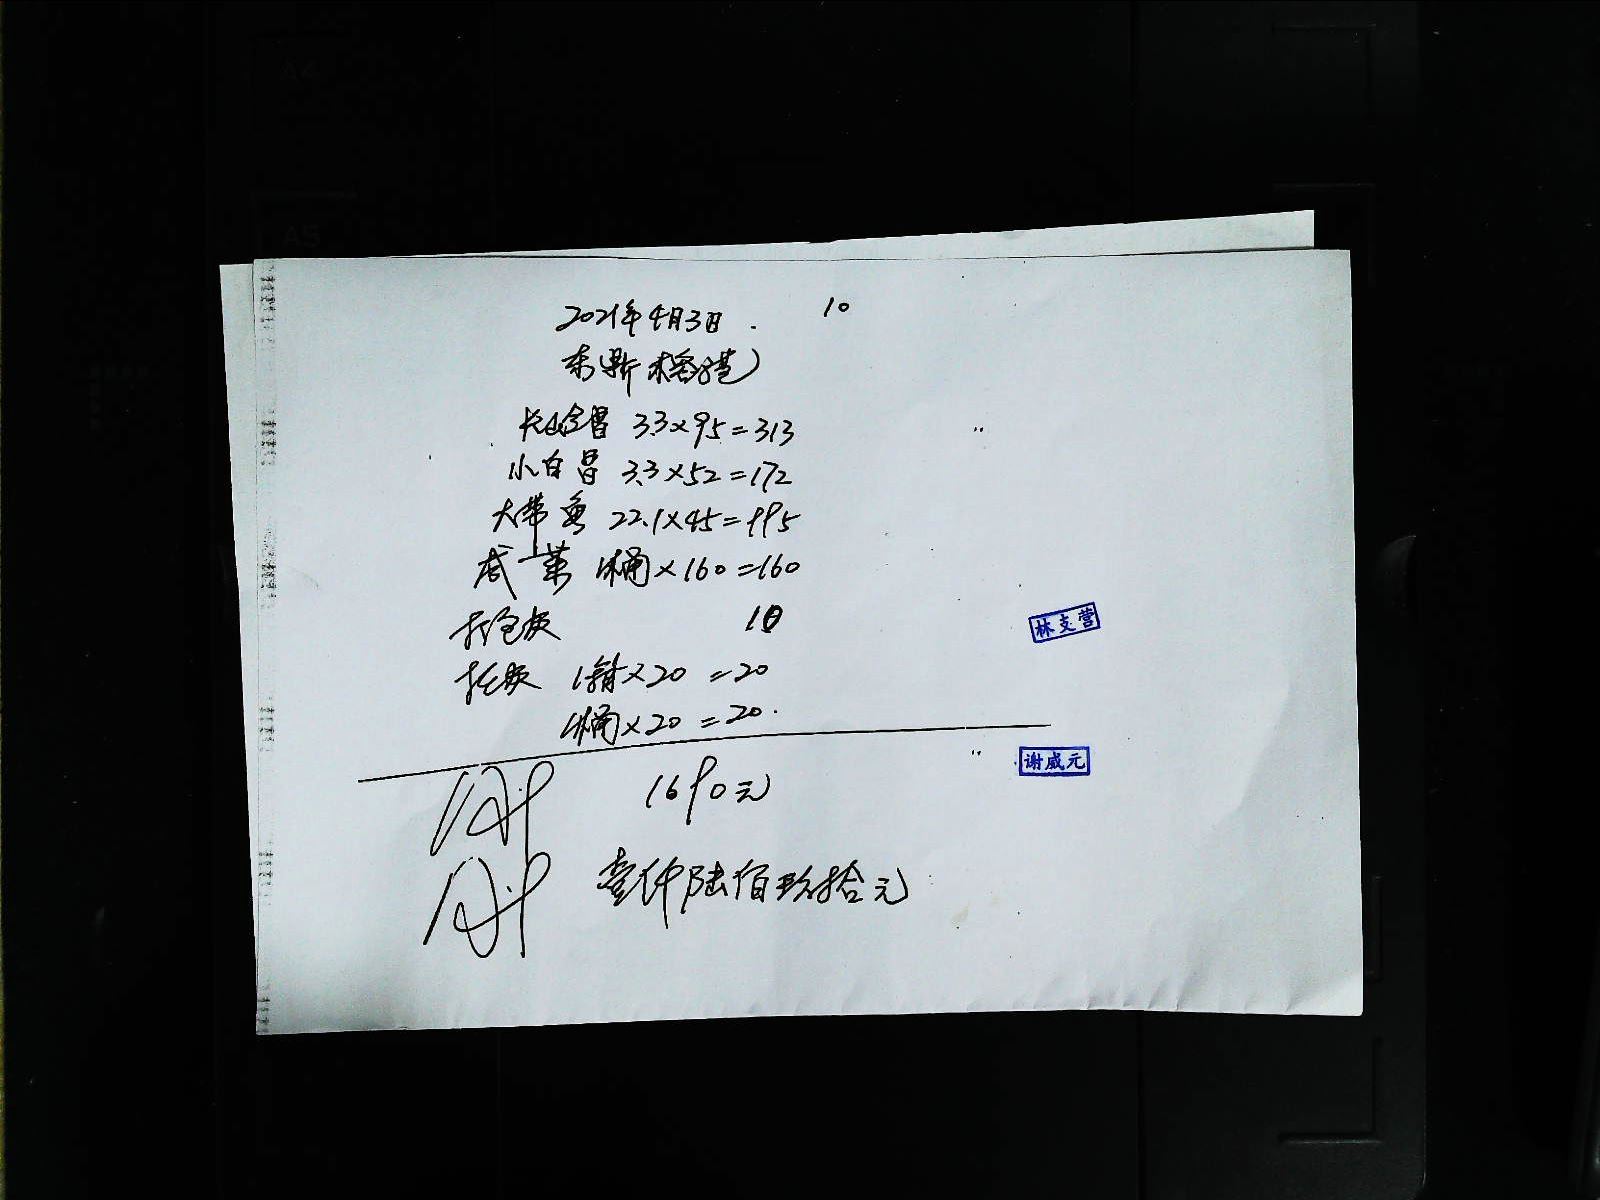 2021年4月3日. 10
长山金昌 3.3×95=313
小白昌 3.3×52=172
大带鱼 22.1×45=995
咸菜 1桶×160=160
打包费 10
托费 1箱×20=20
1桶×20=20.
1690元
壹仟陆佰玖拾元
林支营
谢威元
A4
A5